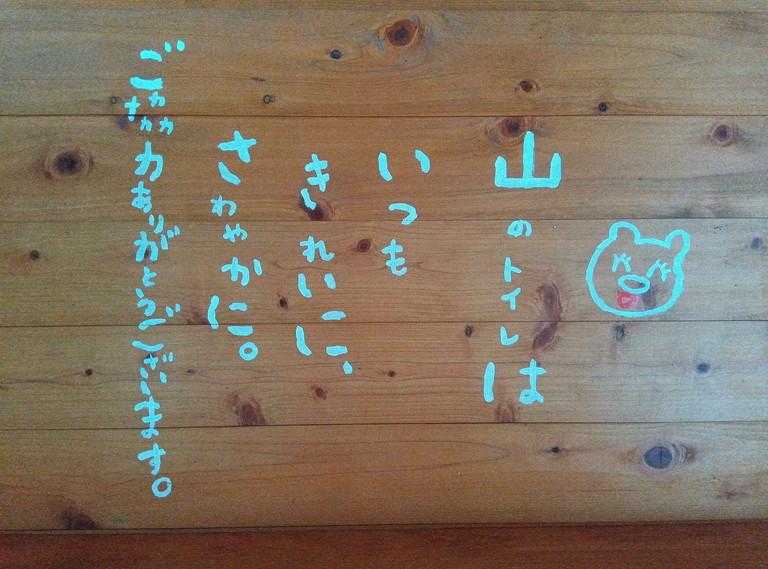 山のトイレは
いつも
きれいに、
さわやかに。
ご協力ありがとうございます。